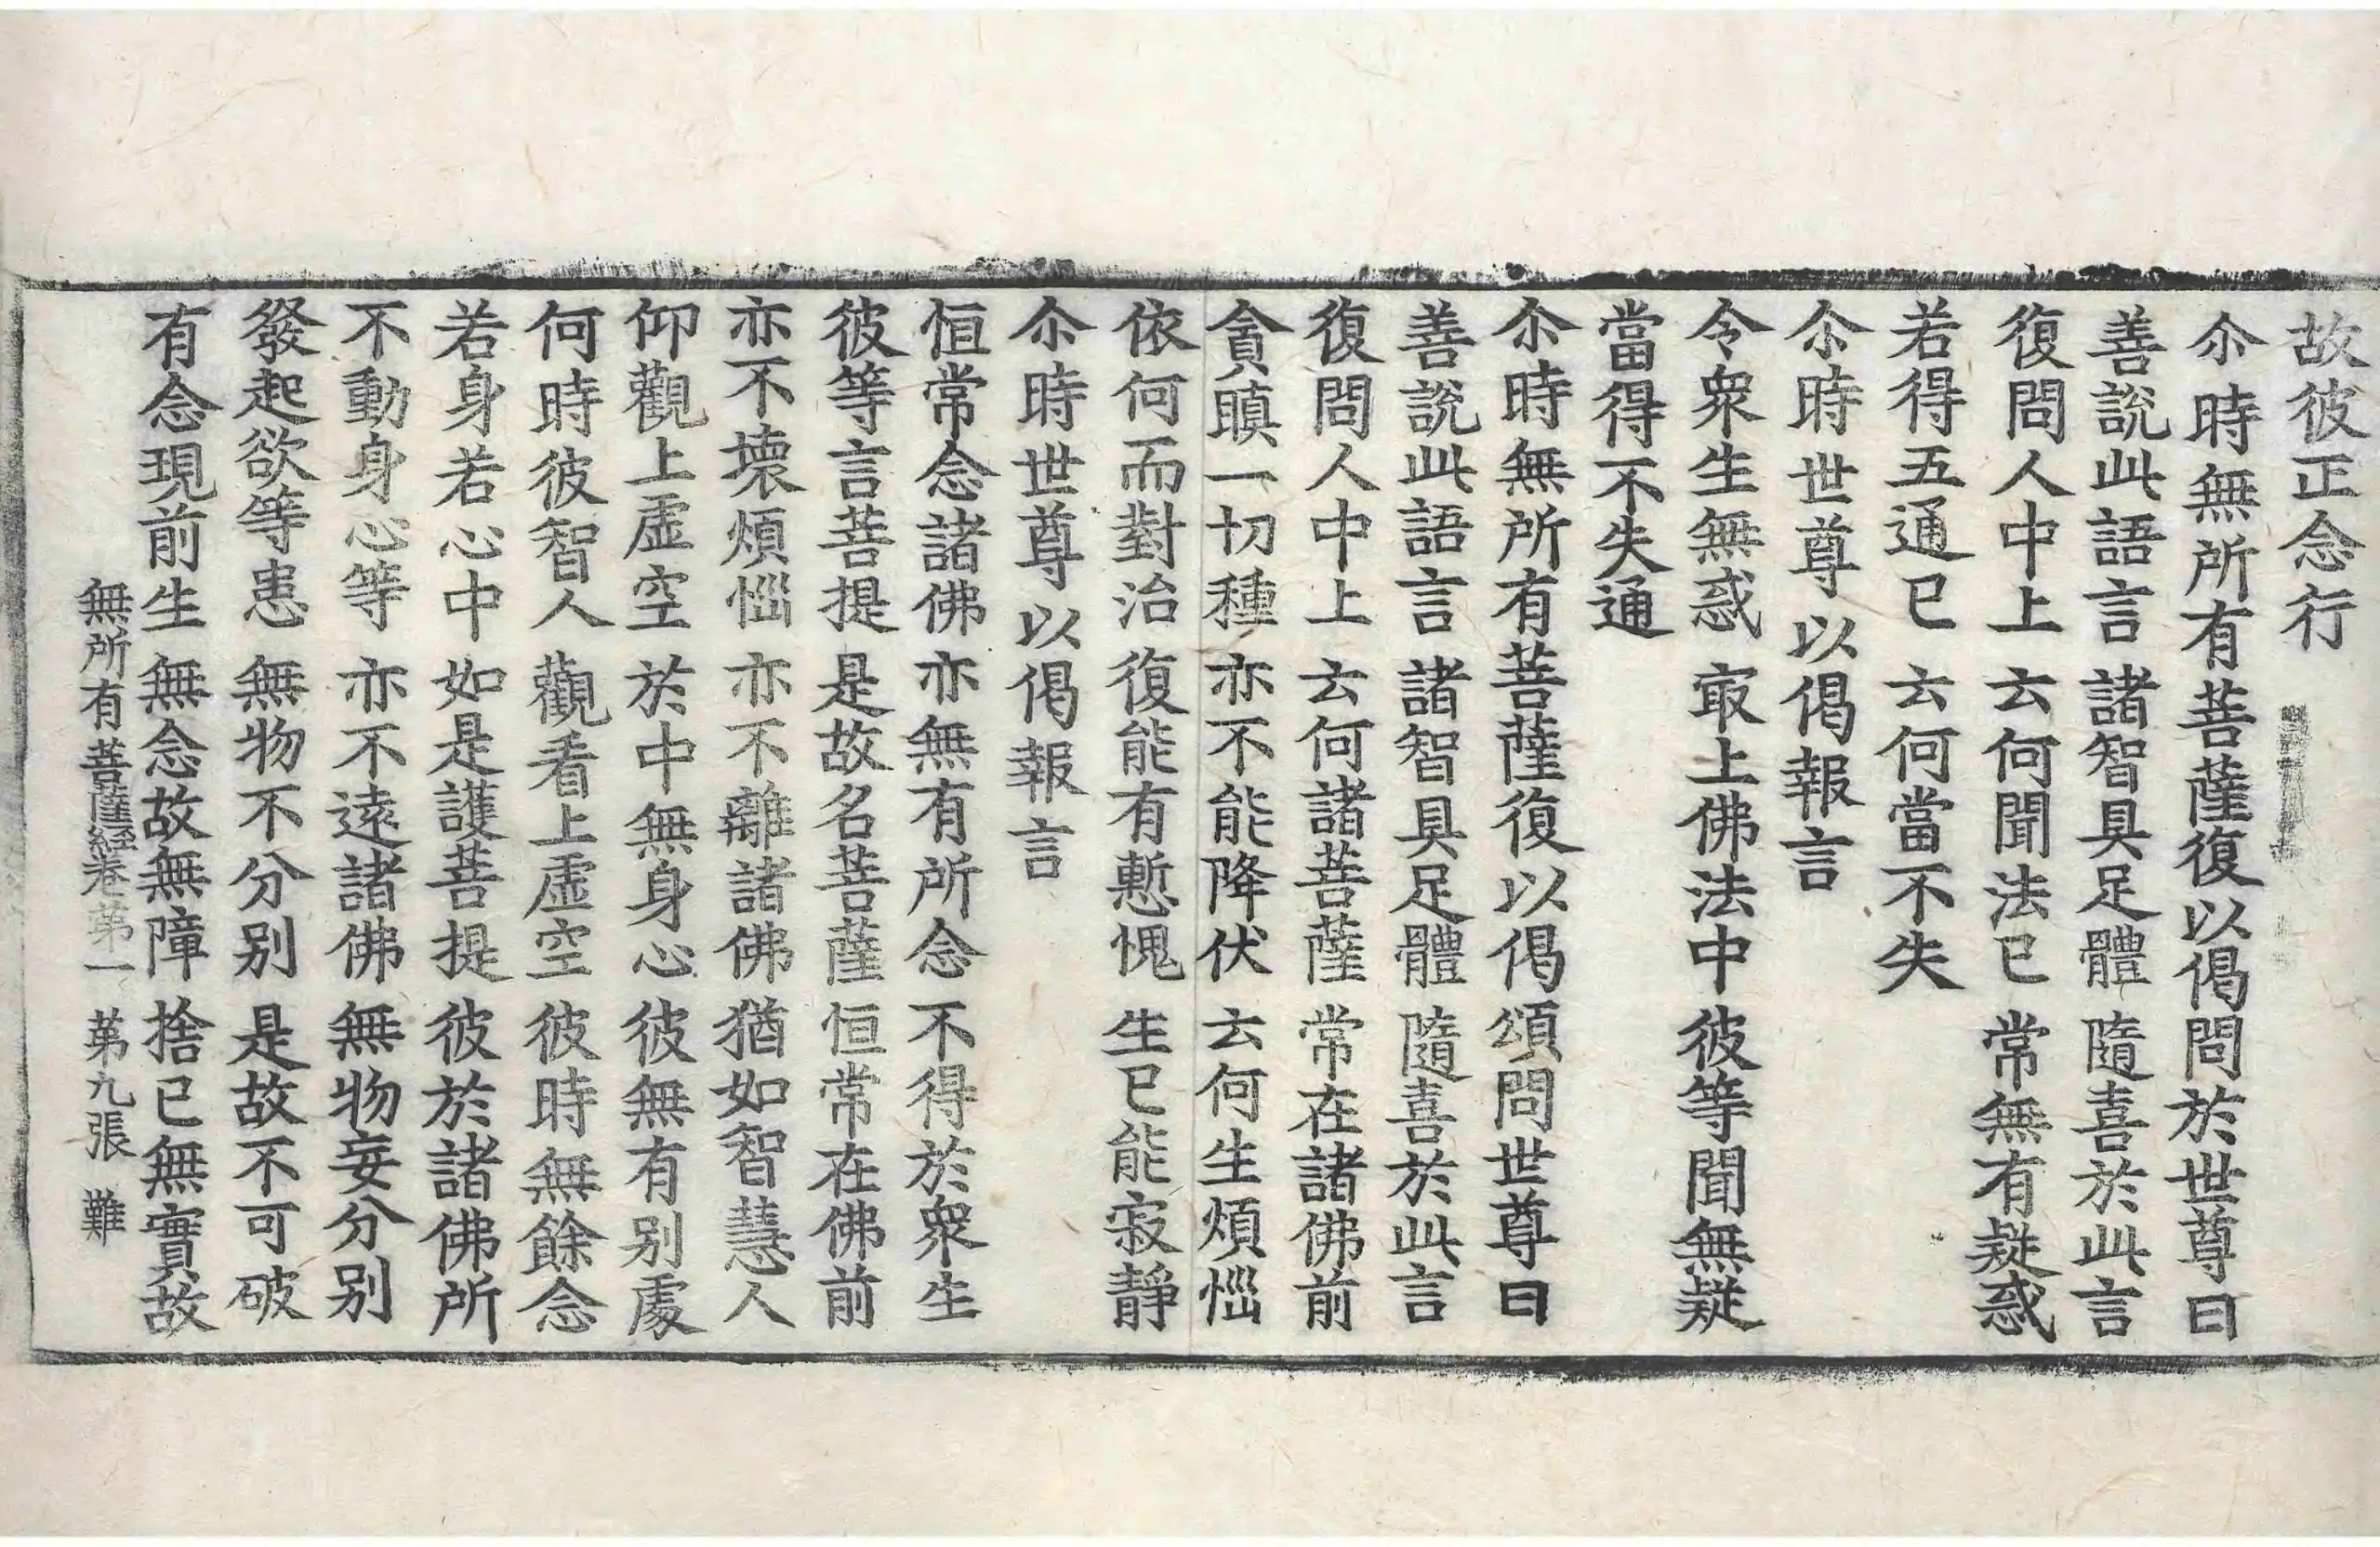 故彼正念行
尒時無所有菩薩復以偈問於世尊曰
善說此語言 諸智具足體 隨喜於此言
復問人中上 云何聞法已 常無有疑惑
若得五通已 云何當不失
尒時世尊以偈報言
令衆生無惑 㝡上佛法中 彼等聞無疑
當得不失通
尒時無所有菩薩復以偈頌問世尊曰
善說此語言 諸智具足體 隨喜於此言
復問人中上 云何諸菩薩 常在諸佛前
貪瞋一切種 亦不能降伏 云何生煩惱
依何而對治 復能有慙愧 生已能寂靜
尒時世尊以偈報言
恒常念諸佛 亦無有所念 不得於衆生
彼等言菩提 是故名菩薩 恒常在佛前
亦不壞煩惱 亦不離諸佛 猶如智慧人
仰觀上虛空 於中無身心 彼無有別處
何時彼智人 觀看上虛空 彼時無餘念
若身若心中 如是護菩提 彼於諸佛所
不動身心等 亦不遠諸佛 無物妄分別
發起欲等患 無物不分別 是故不可破
有念現前生 無念故無障 捨已無實故
無所有菩薩經卷苐一 苐九張 難